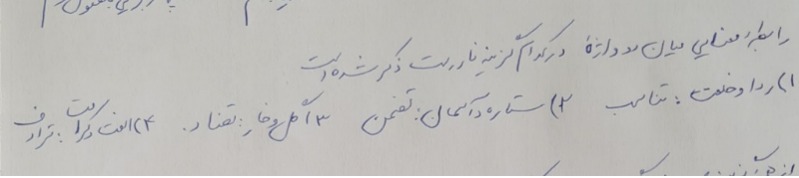 رابطهٔ معنایی میان دو واژهٔ در کدام گزینه نادرست ذکر شده است
۱) ردا و خلعت : تناسب ۲) ستاره و آسمان : تضمن ۳) گل و خار : تضاد . ۴) الفت و کراهت : ترادف